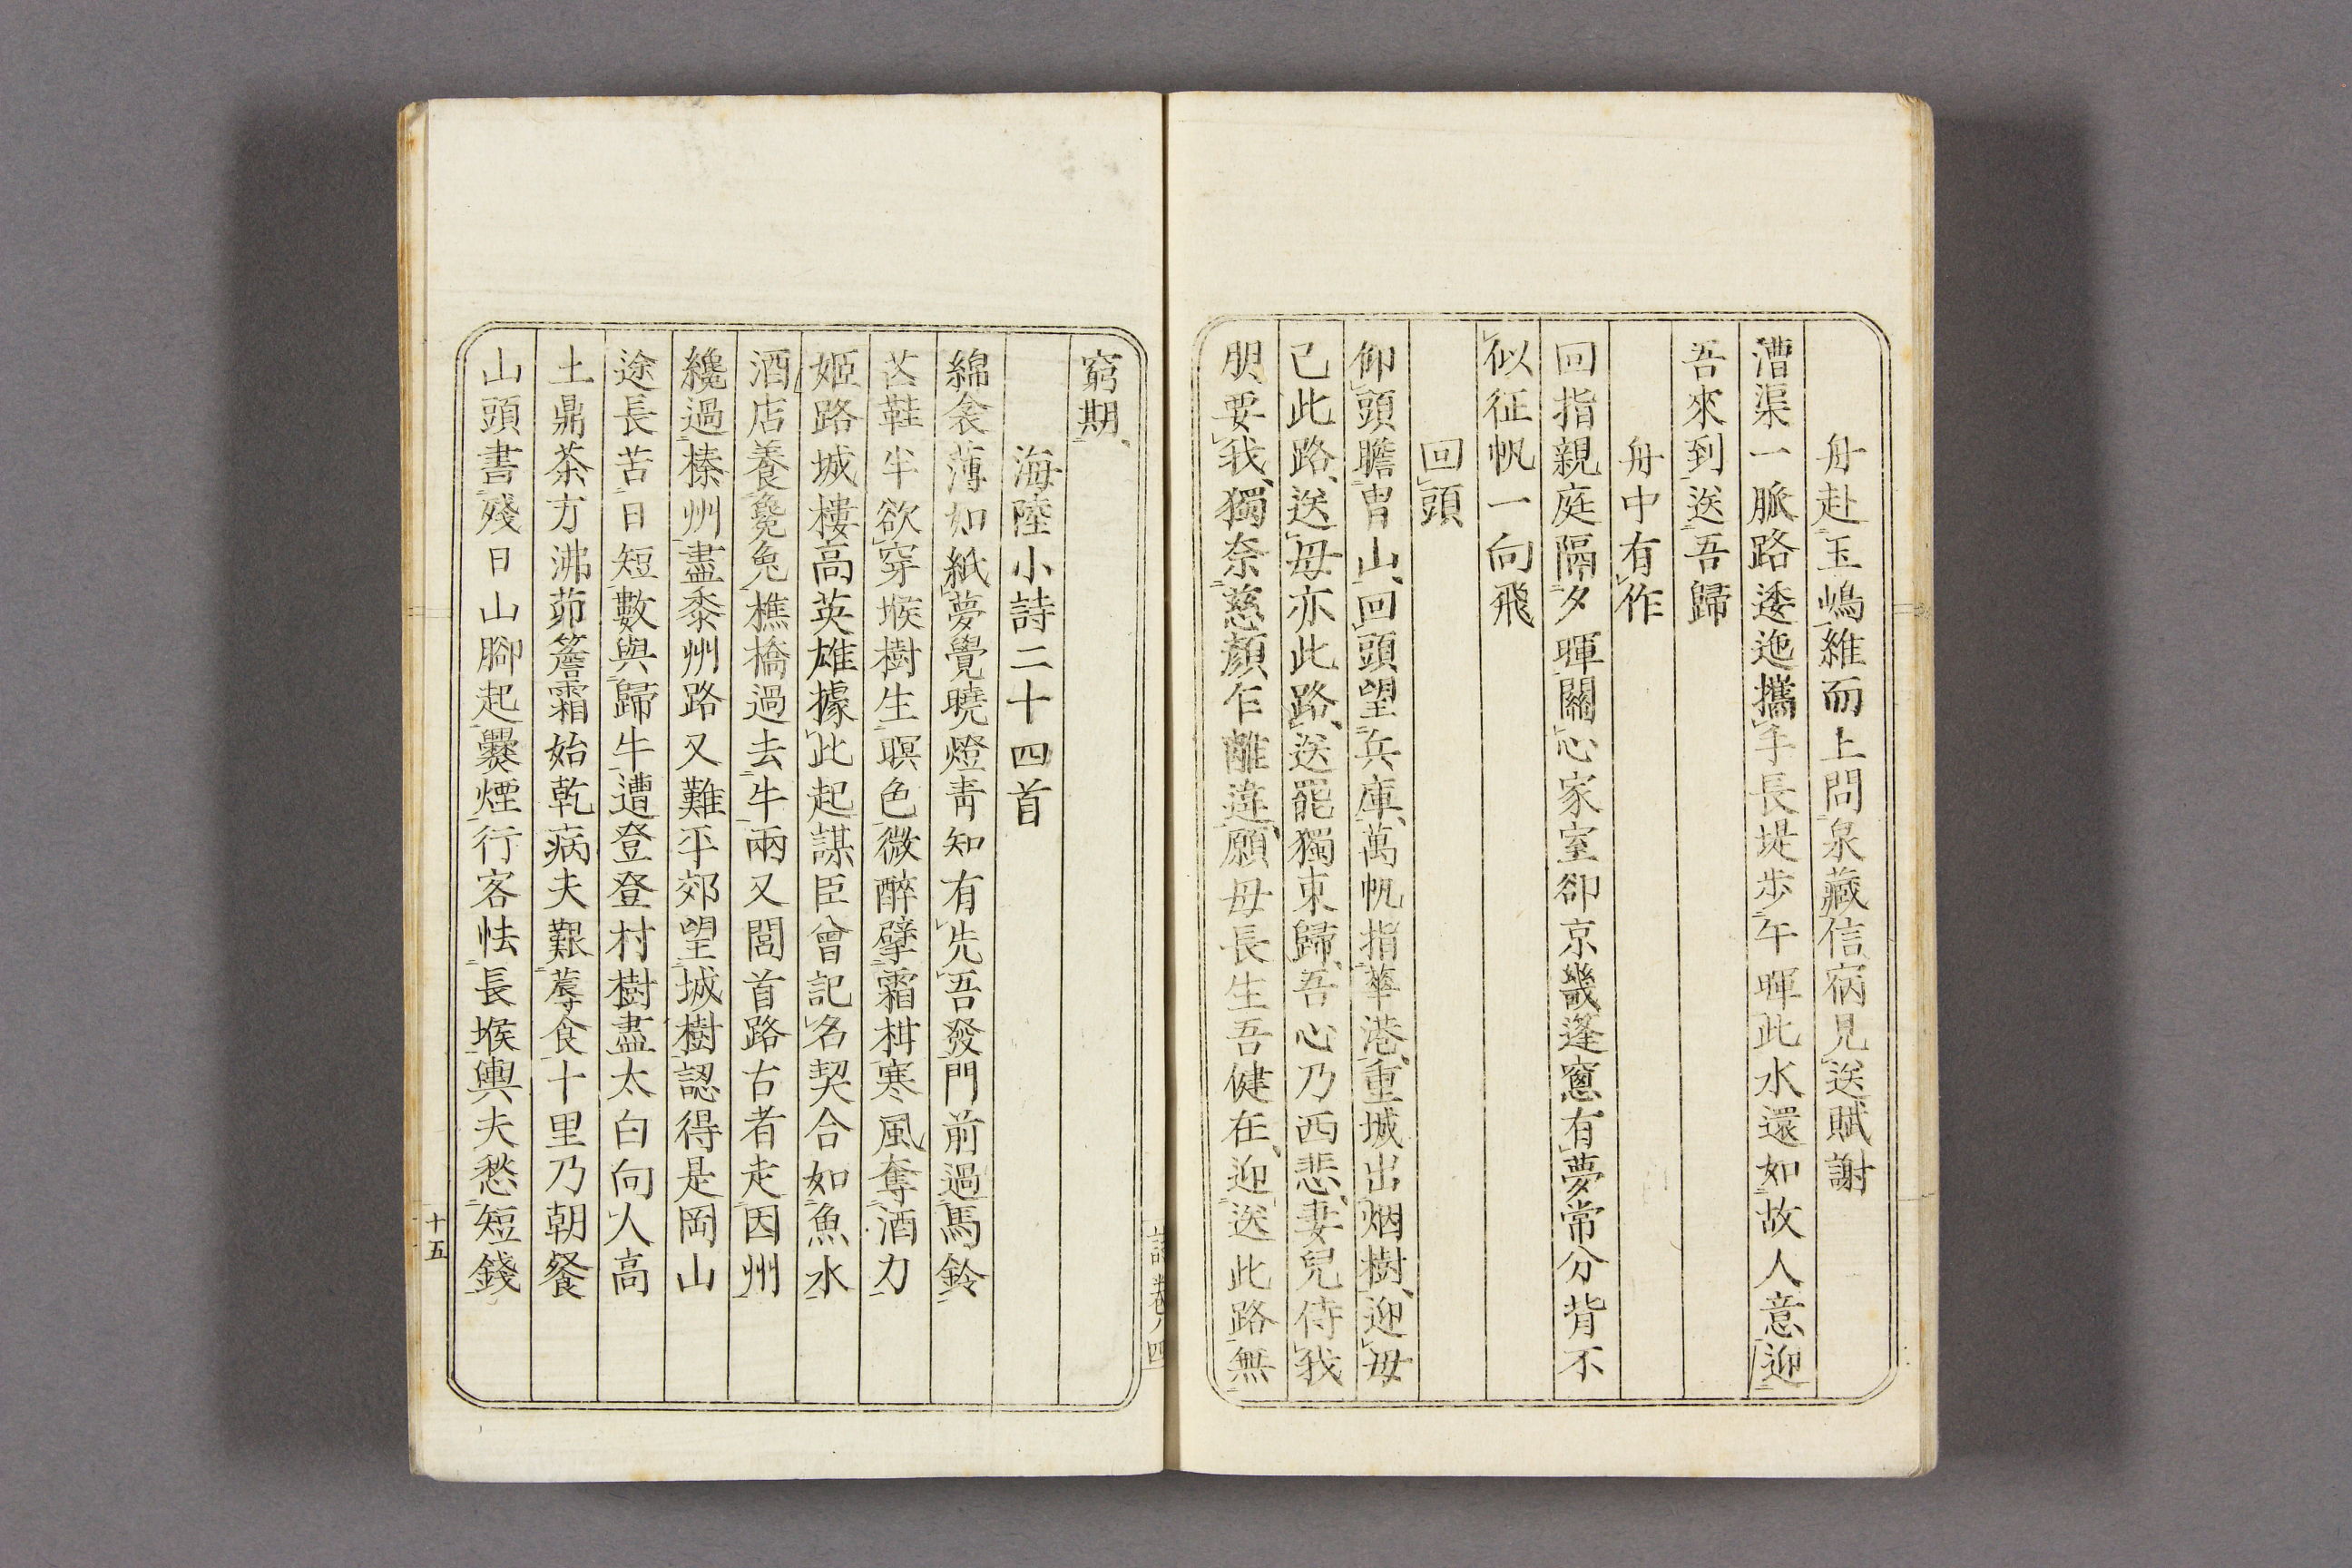 舟赴玉嶋維而上問泉藏信病見送賦謝
漕渠一脈路逶迤攜手長堤步午暉此水還如故人意迎
吾來到送吾歸
舟中有作
回指親庭隔夕暉關心家室卻京畿蓬窻有夢常分背不
似征帆一向飛
回頭
仰頭瞻冑山回頭望兵庫萬帆指華港重城出烟樹迎母
已此路送母亦此路送罷獨東歸吾心乃西悲妻兒侍我
朋要我獨奈慈顏乍離違願母長生吾健在迎送此路無
窮期
海陸小詩二十四首
綿衾薄如紙夢覺曉燈靑知有先吾發門前過馬鈴
芒鞋半欲穿堠樹生暝色微醉擘霜柑寒風奪酒力
姬路城樓高英雄據此起謀臣曾記名契合如魚水
酒店養毚兔樵橋過去牛兩又閭首路古者走因州
纔過榛州盡黍州路又難平郊望城樹認得是岡山
途長苦日短數與歸牛遭登登村樹盡太白向人高
土鼎茶方沸茆簷霜始乾病夫艱蓐食十里乃朝餐
山頭書殘日山腳起爨煙行客怯長堠輿夫愁短錢
詩 卷八 四
十五